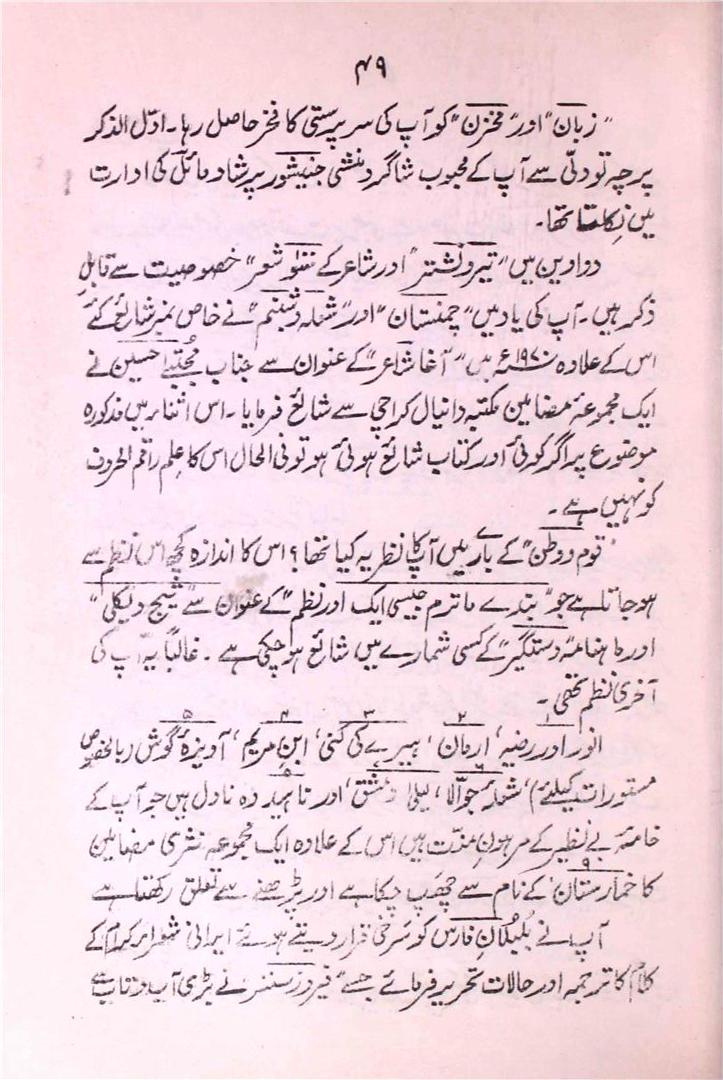 ۴۹
"زبان" اور "مخزن" کو آپ کی سرپرستی کا فخر حاصل رہا۔ اوّل الذکر
پرچہ تو دلّی سے آپ کے محبوب شاگرد منشی جنیشور پرشاد مائل کی ادارت
میں نکلتا تھا۔
دواوین میں "تیر و نشتر" اور شاعر کے سَو شعر" خصوصیت سے قابلِ
ذکر ہیں۔ آپ کی یاد میں "چمنستان" اور "شعلہ و شبنم" نے خاص نمبر شائع کئے
اس کے علاوہ ۱۹۷۰ء میں "آغا شاعر" کے عنوان سے جناب مجتبےٰ حسین نے
ایک مجموعۂ مضامین مکتبہ دانیال کراچی سے شائع فرمایا۔ اس اثناء میں مذکورہ
موضوع پر اگر کوئی اور کتاب شائع ہوئی ہو تو فی الحال اس کا علم راقم الحروف
کو نہیں ہے۔
"قوم و وطن" کے بارے میں آپ کا نظریہ کیا تھا؟ اس کا اندازہ کچھ اس نظم سے
ہو جاتا ہے جو "بندے ماترم جیسی ایک اور نظم" کے عنوان سے "شیج ویکلی"
اور ماہنامہ "دستگیر" کے کسی شمارے میں شائع ہو چکی ہے۔ غالباً یہ آپ کی
آخری نظم تھی۔
۱ ۲ ۳ ۴ ۵
انور اور رضیہ، ارمان، ہیرے کی کنی، ابنِ مریم، آویزۂ گوش (بالخصوص
۶
مستورات کیلئے) 'شعلۂ جوّالا، لیلیٰ دمشق، اور ناہید وہ ناول ہیں جو آپ کے
خامۂ بے نظیر کے مرہونِ منّت ہیں اس کے علاوہ ایک مجموعہ نثری مضامین
۹
کا خمارستان' کے نام سے چھپ چکا ہے اور پڑھنے سے تعلق رکھتا ہے
آپ نے بلبلانِ فارس کو سُرخی قرار دیتے ہوئے ایرانی شعراء کرام کے
کلام کا ترجمہ اور حالات تحریر فرمائے جسے "فیروز سنز" نے بڑی آب و تاب سے